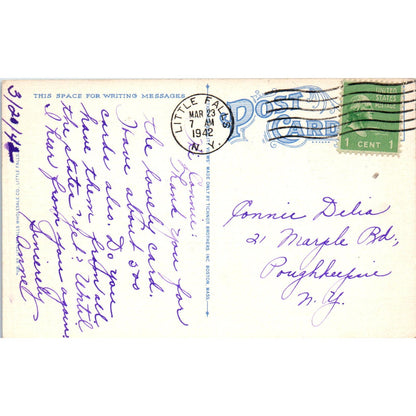 THIS SPACE FOR WRITING MESSAGES
POST
CARD
LITTLE FALLS
MAR 23
7 AM
1942
N.Y.
UNITED
STATES
POSTAGE
1 CENT 1
3/20/42
Connie:
Thank you for
the lovely card.
Have about 300
cards also. Do you
have them from all
the states yet? Until
I hear from you again,
Sincerely
MADE ONLY BY TICHNOR BROTHERS, INC. BOSTON, MASS.
Connie Delia
21 Marple Rd,
Poughkeepsie
N.Y.